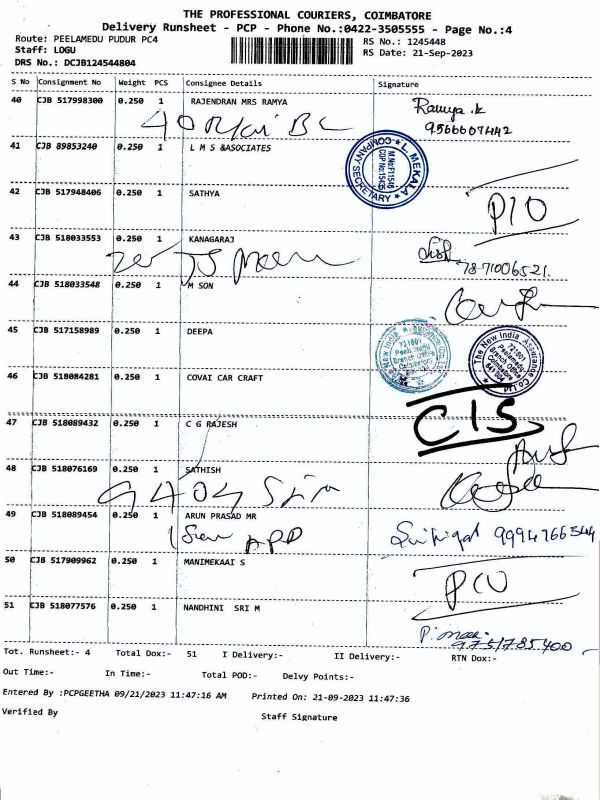 THE PROFESSIONAL COURIERS, COIMBATORE
Delivery Runsheet - PCP - Phone No.:0422-3505555 - Page No.:4
Route: PEELAMEDU PUDUR PC4 RS No.: 1245448
Staff: LOGU RS Date: 21-Sep-2023
DRS No.: DCJB124544804
S No Consignment No Weight PCS Consignee Details Signature
40 CJB 517998300 0.250 1 RAJENDRAN MRS RAMYA Ramya.k
9566607442
41 CJB 89853240 0.250 1 L M S &ASOCIATES
L. MEKALA
COMPANY SECRETARY
42 CJB 517948406 0.250 1 SATHYA
P/O
43 CJB 518033553 0.250 1 KANAGARAJ
7871006521.
44 CJB 518033548 0.250 1 M SON
45 CJB 517158989 0.250 1 DEEPA
The New India Assurance Co. Ltd
721601
Peelamedu
Branch Office
Coimbatore
The New India Assurance Co Ltd
721601
Peelamedu
Branch Office
Coimbatore
46 CJB 518084281 0.250 1 COVAI CAR CRAFT
C/S
47 CJB 518089432 0.250 1 C G RAJESH
48 CJB 518076169 0.250 1 SATHISH
49 CJB 518089454 0.250 1 ARUN PRASAD MR
9994766344
50 CJB 517909962 0.250 1 MANIMEKAAI S
51 CJB 518077576 0.250 1 NANDHINI SRI M
9751785400
Tot. Runsheet:- 4 Total Dox:- 51 I Delivery:- II Delivery:- RTN Dox:-
Out Time:- In Time:- Total POD:- Delvy Points:-
Entered By :PCPGEETHA 09/21/2023 11:47:16 AM Printed On: 21-09-2023 11:47:36
Verified By Staff Signature